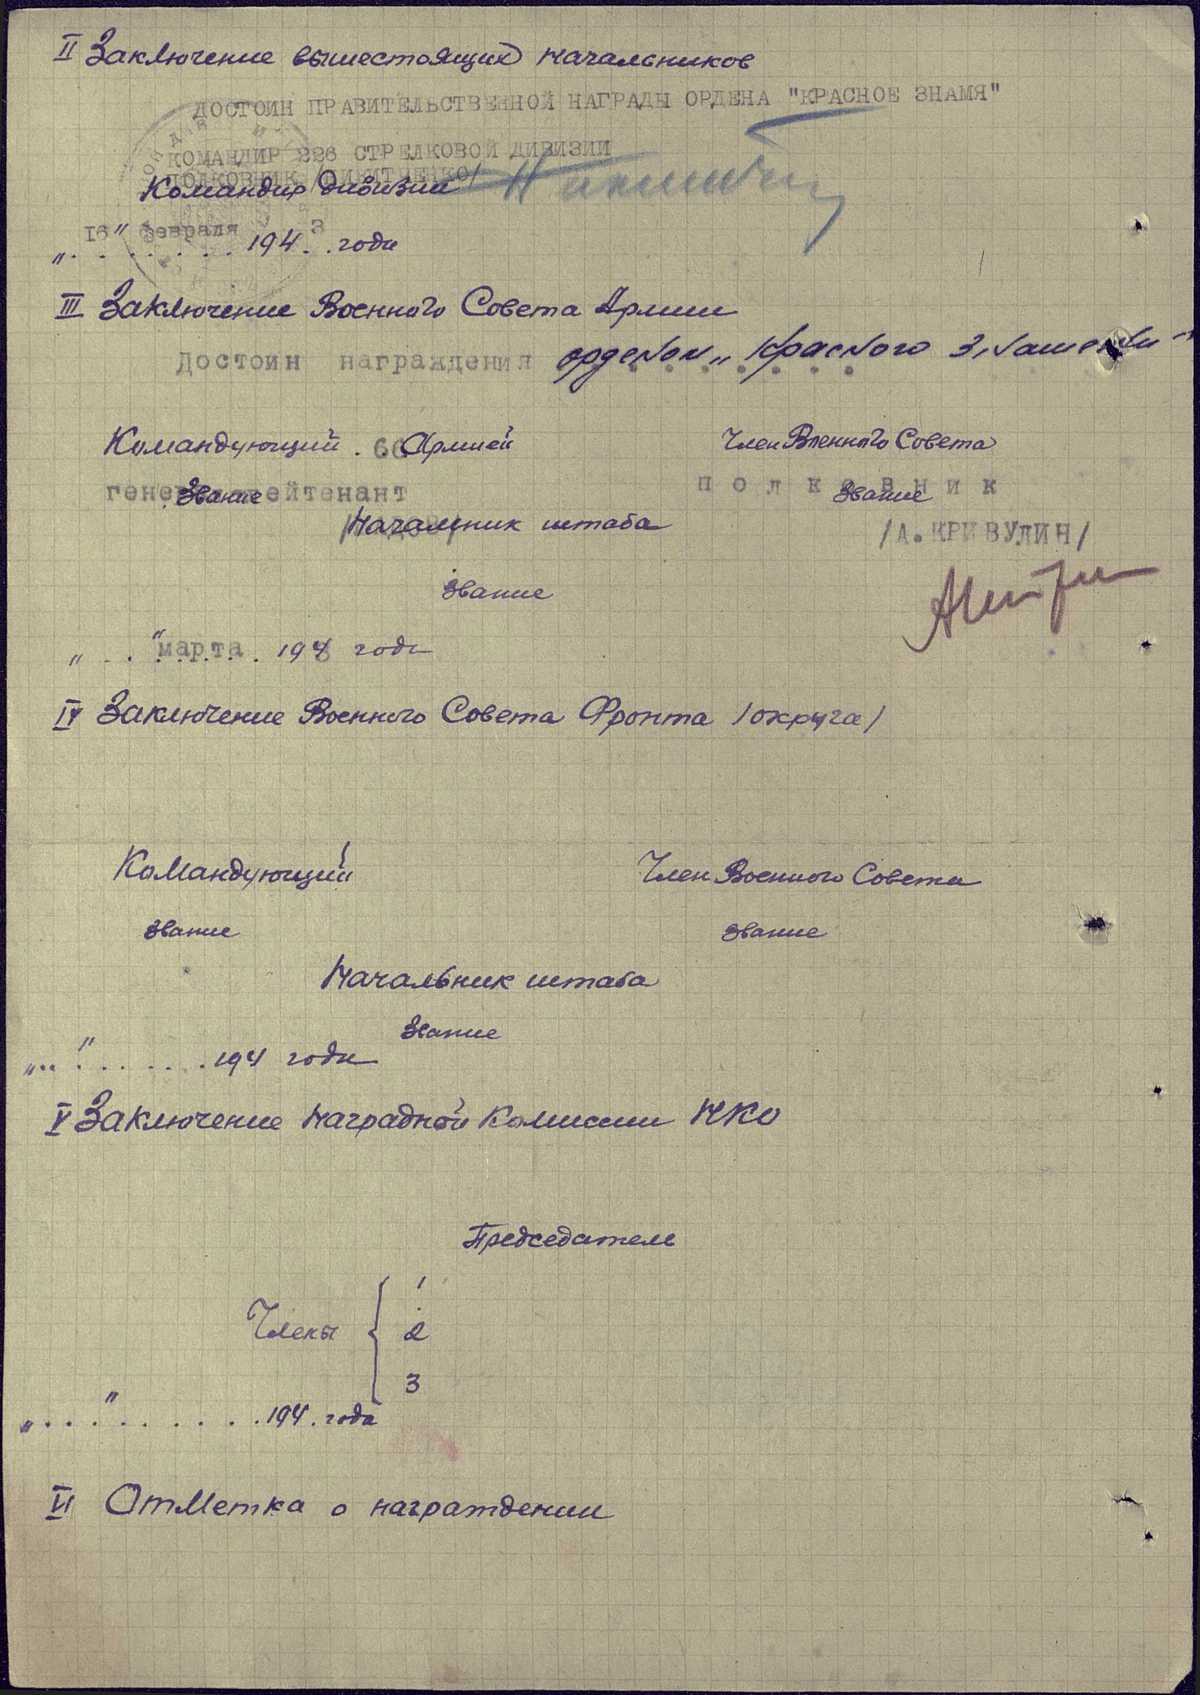 II Заключение вышестоящих начальников
ДОСТОИН ПРАВИТЕЛЬСТВЕННОЙ НАГРАДЫ ОРДЕНА "КРАСНОЕ ЗНАМЯ"
КОМАНДИР 226 СТРЕЛКОВОЙ ДИВИЗИИ
ПОЛКОВНИК /НИКИТЧЕНКО/
Командир дивизии
„16" февраля 1943 года
III Заключение Военного Совета Армии
Достоин награждения орденом „Красного Знамени"
Командующий 60 Армией Член Военного Совета
генерал-лейтенант полковник
Звание Звание
Начальник штаба /А.КРИВУЛИН/
Звание
„ . . " марта 1943 года
IV Заключение Военного Совета Фронта /округа/
Командующий Член Военного Совета
Звание Звание
Начальник штаба
Звание
„ . . " . . . . . 194 года
V Заключение Наградной Комиссии НКО
Председатель
1
Члены { 2
3
„ . . . " . . . . . . 194 . года
VI Отметка о награждении